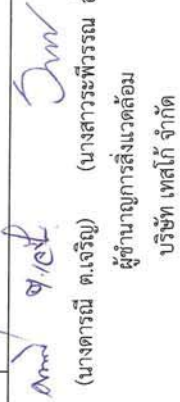 (นางดารณี ต.เจริญ) (นางสาวระพีวรรณ
ผู้ชำนาญการสิ่งแวดล้อม
บริษัท เทสโก้ จำกัด